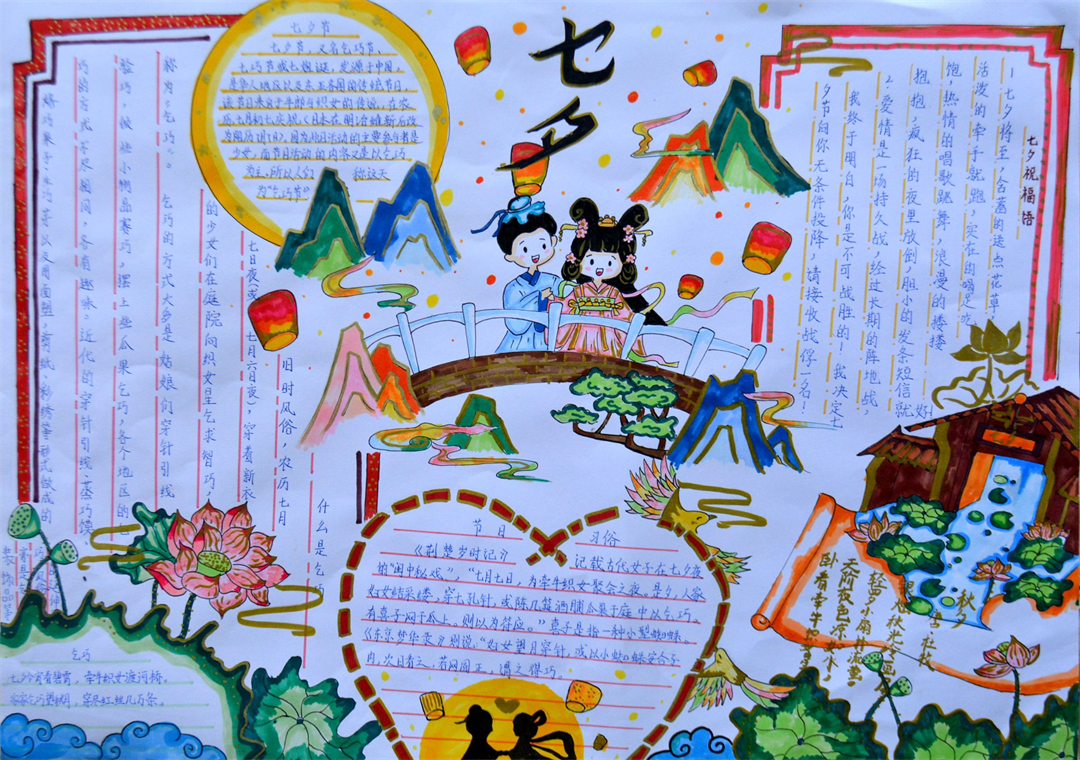 七夕
七夕节
七夕节，又名乞巧节、
七巧节或七姐诞，发源于中国，
是华人地区以及东亚各国的传统节日，
该节日来自于牛郎与织女的传说，在农
历七月初七庆祝（日本在明治维新后改
为阳历7月7日）。因为此日活动的主要参与者是
少女，而节日活动的内容又是以乞巧
为主，所以人们 称这天
为“乞巧节”
七夕祝福语
1.七夕将至，含蓄的送点花草，
活泼的牵手就跑，实在的喝足吃
饱，热情的唱歌跳舞，浪漫的搂搂
抱抱，疯狂的夜里放倒，胆小的发条短信就好！
2.爱情是一场持久战，经过长期的阵地战，
我终于明白，你是不可战胜的！我决定七
夕节向你无条件投降，请接收战俘一名！
什么是乞
旧时风俗，农历七月
七日夜或七月六日夜，穿着新衣
的少女们在庭院向织女星乞求智巧，
称为“乞巧”。 乞巧的方式大多是姑娘们穿针引线
验巧，做些小物品赛巧，摆上些瓜果乞巧，各个地区的乞
巧的方式不尽相同，各有趣味。近代的穿针引线、蒸巧馍
烙巧果子、生巧芽以及用面塑、剪纸、彩绣等形式做成的
装饰品等
乞巧
七夕今宵看碧霄，牵牛织女渡河桥。
家家乞巧望秋月，穿尽红丝几万条。
节日 习俗
《荆楚岁时记》 记载古代女子在七夕夜
的“闺中秘戏”，“七月七日，为牵牛织女聚会之夜。是夕，人家
妇女结采缕，穿七孔针，或陈几筵酒脯瓜果于庭中以乞巧。
有喜子网于瓜上。则以为符应。”喜子是指一种小型蜘蛛。
《东京梦华录》则说，“妇女望月穿针，或以小蜘蛛安合子
内，次日看之，若网圆正，谓之得巧。
秋夕
轻罗小扇扑流萤。
天阶夜色凉如水，
卧看牵牛织